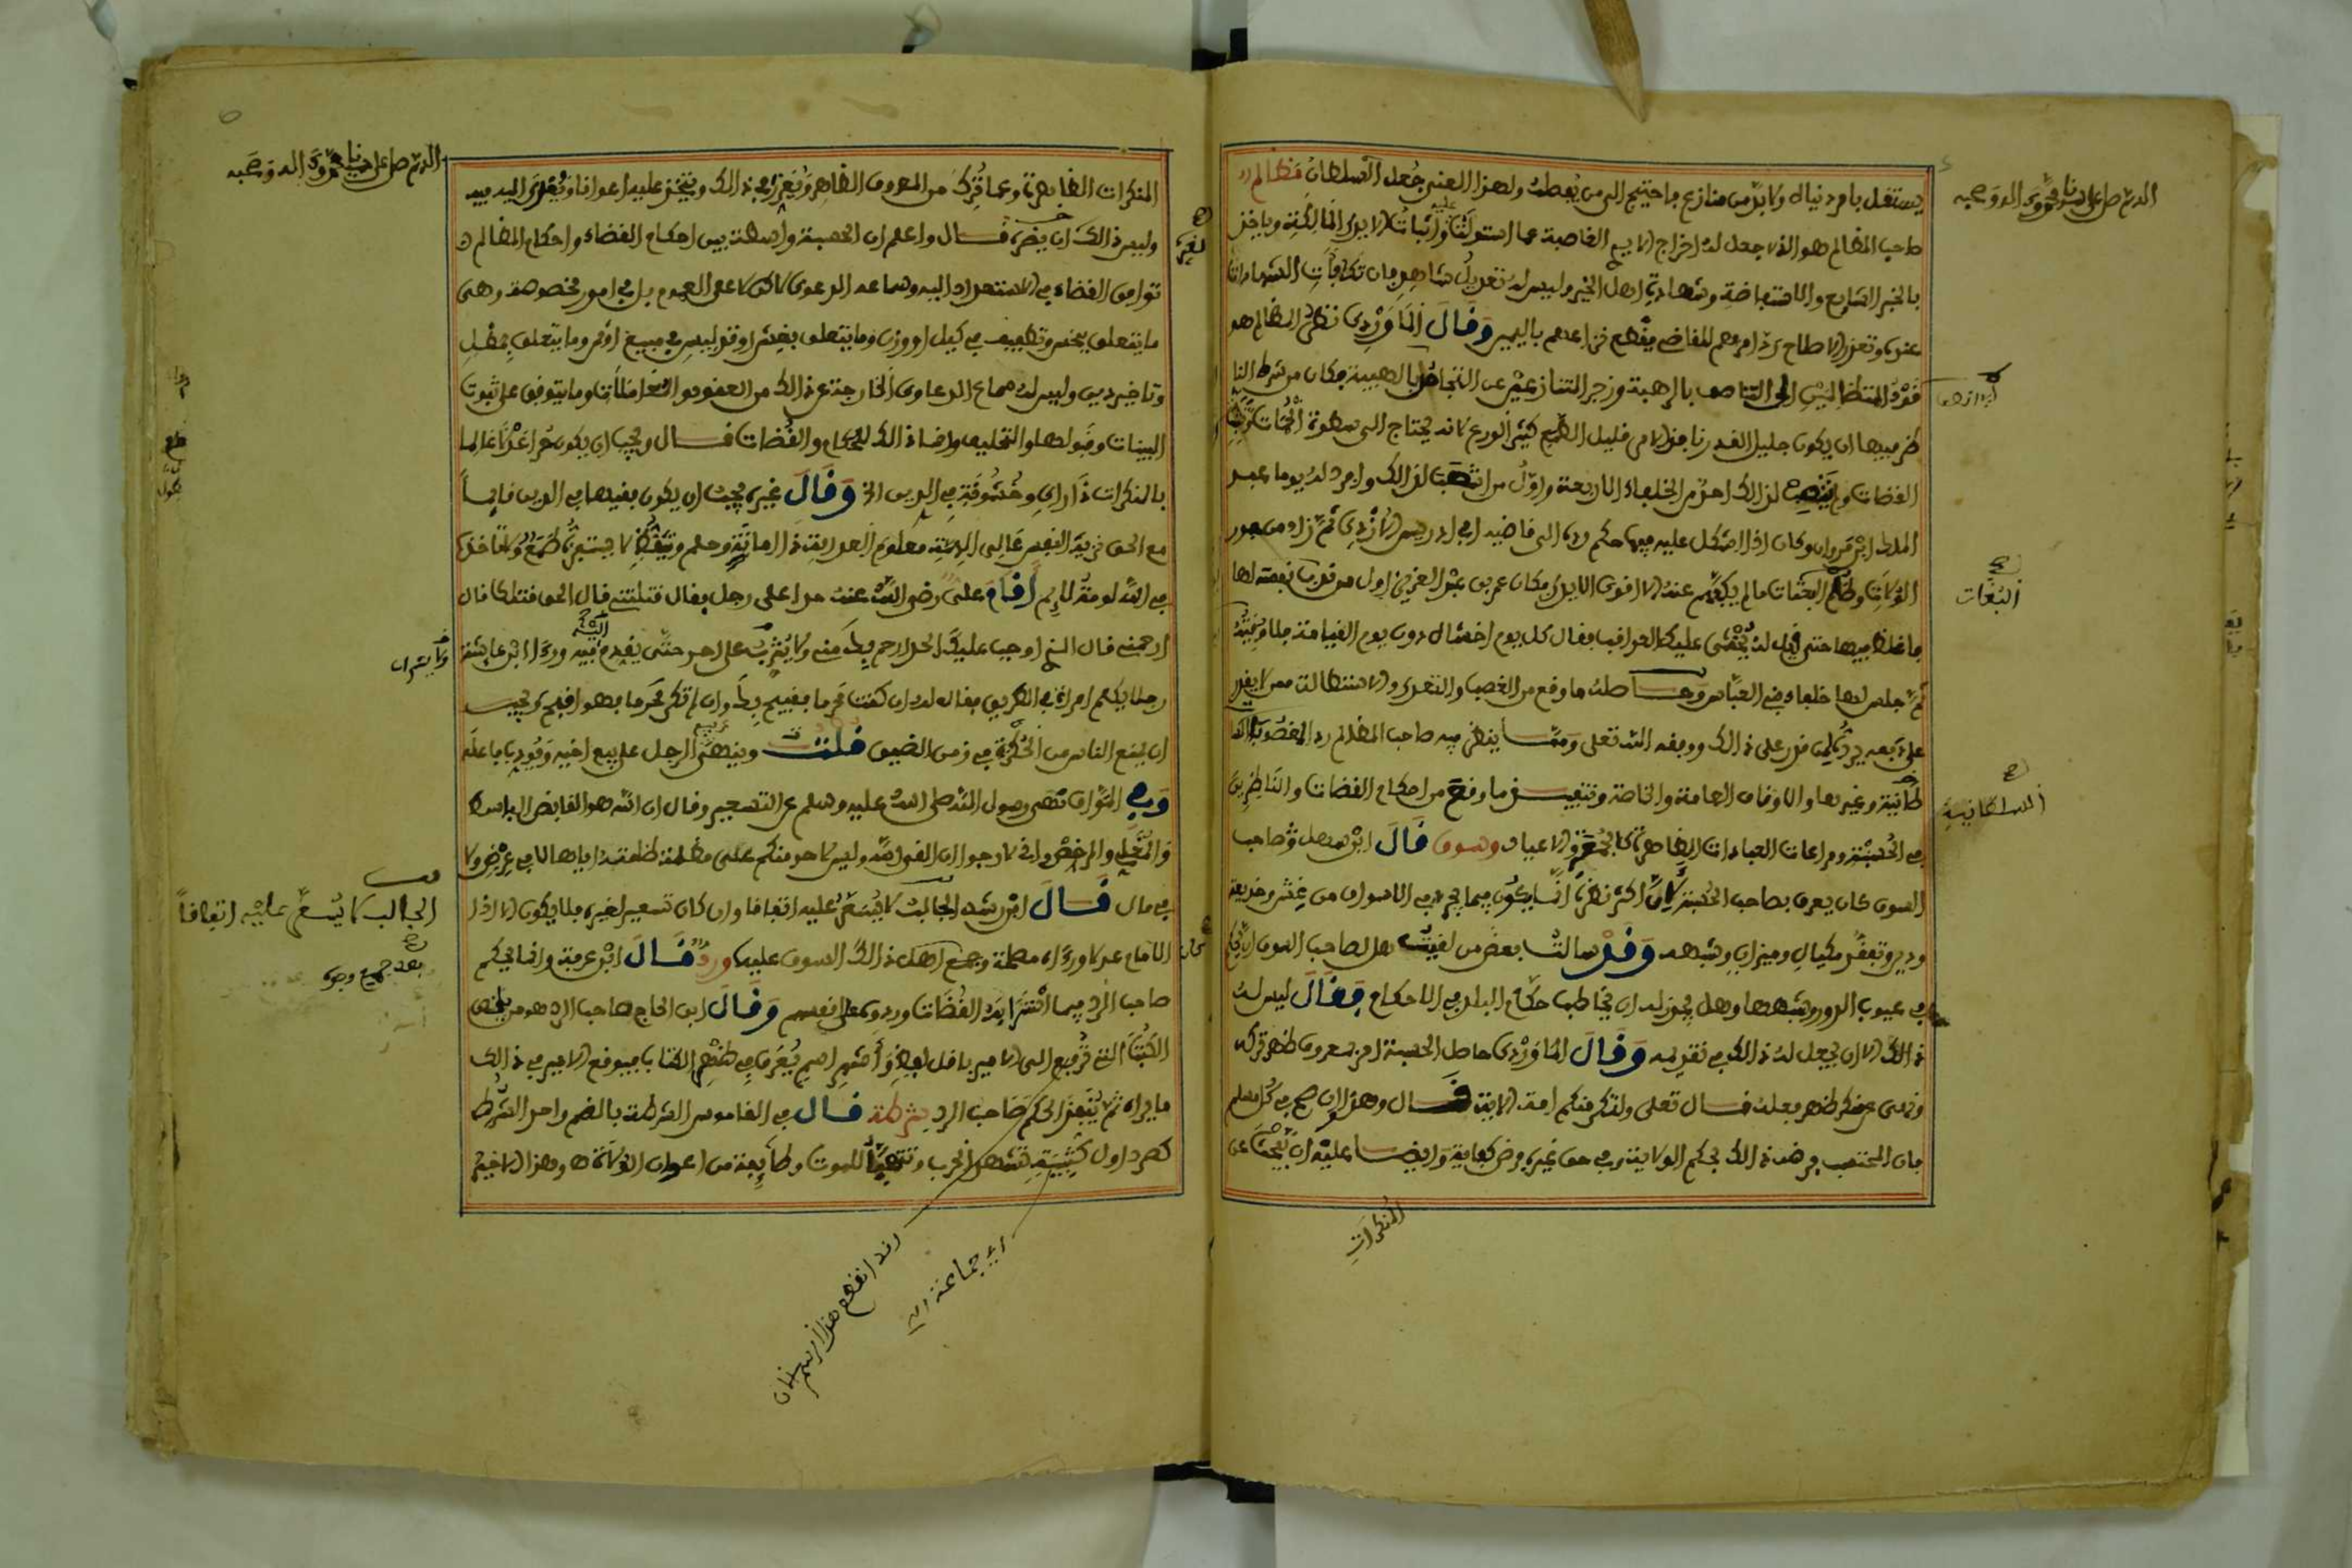 يستقل بامر دنياه ولابد من منازع فاحتيج الى من يعطف ولهذا المعنى جعل السلطان مظالم
صاحب المظالم هو الذي جعل له اخراج الايدي الغاصبة عما استولت عليه واثبات الايدي المالكة وياخذ
بالخبر الشايع والاستفاضة وشهادة اهل الخير وليس له تعديل شاهد فان تكافات الشهادات
عنده وتعذر الاصلاح رد امرهم للقاضي يقطع نزاعهم باليمين وقال الماوردي نظر المظالم هو
قود المتظالمين الى التناصف بالرهبة وزجر المتنازعين عن التجاحد بالهيبة فكان من شرط النا
ظر فيها ان يكون جليل القدر نافذ الامر قليل الطمع كثير الورع لانه يحتاج الى سطوة الحمات وتثبت
القضات ولم ينتصب لذلك احد من الخلفاء الاربعة واول من انتصب لذلك وافرد له يوما عبد
الملك ابن مروان وكان اذا اشكل عليه فيها حكم رده الى قاضيه ابي ادريس الازدي ثم زاد من جور
الولات وظلم العتات ما لم يكفهم عنه الا اقوى الايدي فكان عمر بن عبد العزيز اول من ندب نفسه لها
فاغلظ فيها حتى قيل له يخشى عليك العواقب فقال كل يوم اخشاه دون يوم القيامة فلا وقيته
ثم جلس لها خلفاء بني العباس وحاصله ما وقع من الغصب والتعدي والاستطالة ممن لا يقدر
على دفعه يرد لمن قدر على ذلك ووفقه الله تعلى ومما ينظر فيه صاحب المظالم رد الغصوب السلـ
طانية وغيرها والاوقاف العامة والخاصة وتنفيذ ما وقع من احكام القضات والناظرين
في الحسبة ومراعات العبادات الظاهرة كالجمعة والاعياد وسوق قال ابن سهل وصاحب
السوق كان يعرف بصاحب الحسبة لان اكثر نظره انما يكون فيما يجري في الاسواق من غش وخديعة
ودين وتفقد مكيال وميزان وشبهه وقد سالت بعض من لقيت هل لصاحب السوق ان يحكم
في عيوب الدور وشبهها وهل يجوز له ان يخاطب حكام البلاد في الاحكام فقال ليس له
ذلك الا ان يجعل له ذلك في تقديمه وقال الماوردي حاصل الحسبة امر بمعروف ظهر تركه
ونهي عن منكر ظهر فعله قال تعلى ولتكن منكم امة الاية قال وهذا وان صح من كل مسلم
فان المحتسب فرضه ذلك بحكم الولاية وفي حق غيره فرض كفاية وايضا عليه ان يبحث عن
المنكرات
اللهم صل على سيدنا محمد وعلى اله وصحبه
البغات
السلطانية
اللهم صل على سيدنا محمد وعلى اله وصحبه
المنكرات الظاهرة وعما ترك من المعروف الظاهر ويعزر في ذلك ويتخذ عليه اعوانا
وليس ذلك لغيره قال واعلم ان الحسبة واسطة بين احكام القضاء واحكام المظالم
توافق القضاء في الاستعداد اليه وسماعه الدعوى لاكن لا على العموم بل في امور مخصوصة وهي
ما يتعلق ببخس وتطفيف في كيل او وزن وما يتعلق بغش او تدليس في مبيع او ثمن وما يتعلق بمطل
وتاخير دين وليس له سماع الدعاوى الخارجة عن ذلك من العقود والمعاملات وما يتوقف على ثبوت
البينات وقبولها والتحليف وانما ذلك للحكام والقضات قال ويجب ان يكون حرا عدلا عالما
بالمنكرات ذا راي وخشونة في الدين الخ وقال غيره يجب ان يكون فقيها في الدين قايما
مع الحق نزيه النفس عالي الهمة معلوم العدالة ذا اناة وحلم وتيقظ لا يستفزه طمع ولا تاخذه
في الله لومة لايم اقام علي رضي الله عنه حدا على رجل فقال قتلتني قال الحق قتلك قال
رجلا يكلم امراة في الطريق فقال له ان كانت محرما فقبيح بك وان لم تكن محرما فهو اقبح
ان يمنع الناس من الحكرة في زمن الضيق قلت وينهى الرجل عن بيع اخيه
وفي النوادر نهى رسول الله صلى الله عليه وسلم عن التسعير وقال ان الله هو القابض الباسط
والمغلي والمرخص واني لارجو ان القى الله وليس لاحد منكم عندي مظلمة ظلمته اياها لا في عرض ولا
في مال قال ابن رشد الجالب لا يسعر عليه اتفاقا وان كان تسعير لغيره فلا يكون الا اذا
الامام عدلا وراه مصلحة وجمع اهل ذلك السوق عليه ورد قال ابن عرفة وانما يحكم
صاحب الرد فيما استرابه القضات وردوه على انفسهم وقال ابن الحاج صاحب الرد هو من يلخص
الكتب التي ترفع الى الامير باقل لفظ
ما يراه ثم ينفذ الحكم صاحب الرد شرطة قال في القاموس الشرطة بالضم واحد الشرط
كصرد اول كتيبة تشهد الحرب وتتهيا للموت وطايفة من اعوان الولاة وهذا الاخير
الجالب لا يسعر عليه اتفاقا
بعد جميع وجوه